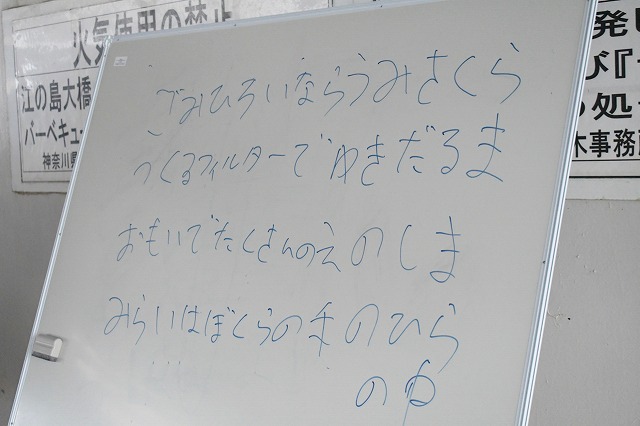 火気使用の禁止
江の島大橋
バーベキュー
神奈川県
ごみひろいならうみさくら
つくるフィルターでゆきだるま
おもいでたくさんのえのしま
みらいはぼくらの手のひら
のゆ
発
び『
処
木事務所